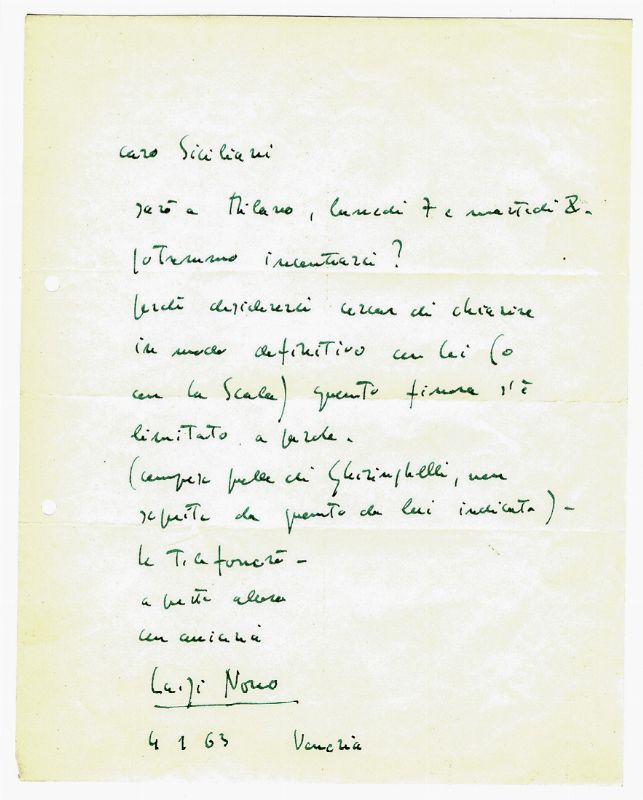 caro Siciliani
sarò a Milano, lunedì 7 e martedì 8.
potremmo incontrarci?
perché desidererei cercar di chiarire
in modo definitivo con lei (o
con la Scala) quanto finora s'è
limitato a parole.
(compresa quella di Ghiringhelli, non
seguita da quanto da lui indicato) –
le telefonerò –
a presto allora
con amicizia
Luigi Nono
4 1 63 Venezia